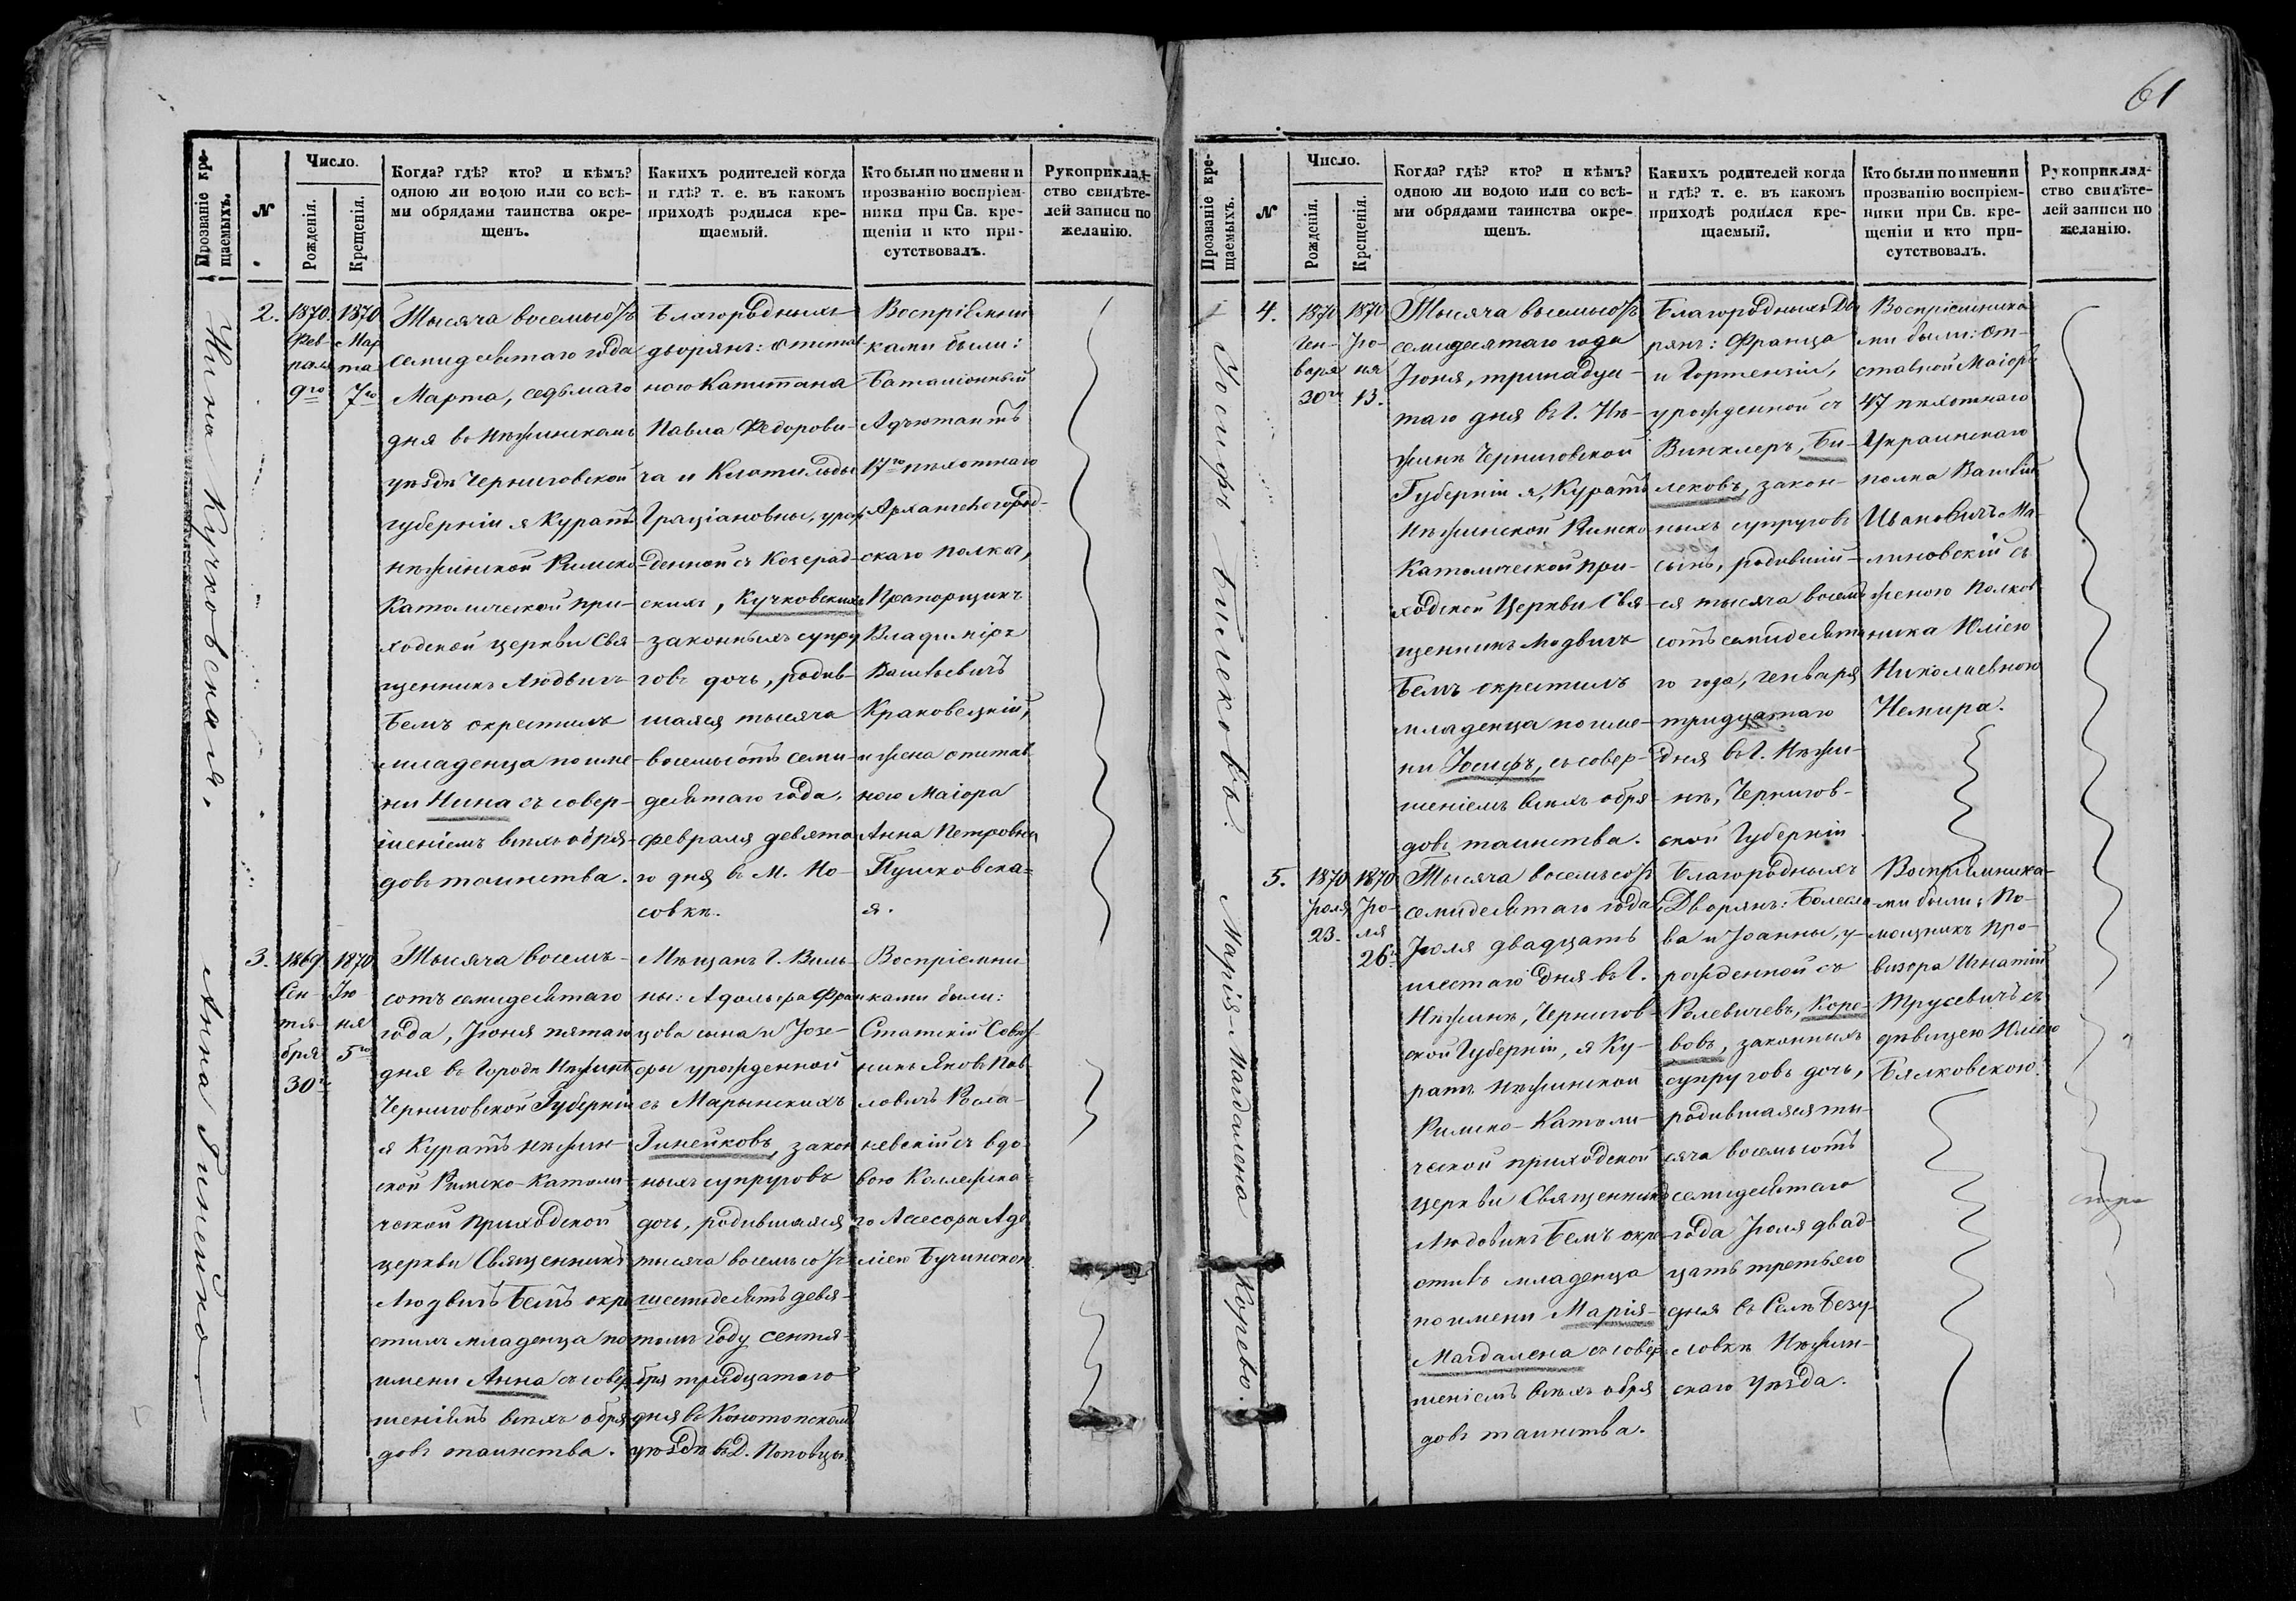 61
Прозваніе кре-
щаемыхъ.
N
Число.
Рожденія.
Крещенія.
Когда? гдѣ? кто? и кѣмъ?
одною ли водою или со всѣ-
ми обрядами таинства окре-
щенъ.
Какихъ родителей когда
и гдѣ? т. е. въ какомъ
приходѣ родился кре-
щаемый.
Кто были по имени и
прозванію воспріем-
ники при Св. кре-
щеніи и кто при-
сутствовалъ.
Рукоприклад-
ство свидѣте-
лей записи по
желанію.
Нина Кучковская.
2.
1870
Фев-
раля
9го
1870
Мар
та
7го
Тысяча восемьсотъ
семидесятаго года
Марта, седьмаго
дня въ Нѣжинскомъ
уѣздѣ Черниговской
губерніи я Куратъ
Нѣжинской Римско
Католической при-
ходской церкви Свя-
щенникъ Людвигъ
Бемъ окрестилъ
младенца по име-
ни Нина съ совер-
шеніемъ всѣхъ обря-
довъ таинства.
Благородныхъ
дворянъ: отстав
ного Капитана
Павла Федорови-
ча и Клотильды
Граціановны, урож
денной съ Козерад-
скихъ, Кучковскихъ
законныхъ супру
говъ дочь, родив-
шаяся тысяча
восемьсотъ семи-
десятаго года,
февраля девята
го дня въ М. Но-
совкѣ.
Воспріемни
ками были:
Баталіонный
Адъютантъ
17го пѣхотнаго
Архангелогород-
скаго полка,
Прапорщикъ
Владиміръ
Васильевичъ
Краковецкій,
и жена отстав
ного Маіора
Анна Петровна
Пушковска-
я.
Анна Гинейко
3.
1869
Сен-
тя-
бря
30го
1870
Ію
ня
5го
Тысяча восемь-
сотъ семидесятаго
года, Іюня пятаго
дня въ Городѣ Нѣжинѣ
Черниговской Губерніи
я Куратъ Нѣжин-
ской Римско-Католи-
ческой Приходской
церкви Священникъ
Людвигъ Бемъ окре
стилъ младенца по
имени Анна съ совер
шеніемъ всѣхъ обря
довъ таинства.
Мѣщанъ Г. Виль-
ны: Адольфа Фран
цова сына и Юзе-
фы урожденной
съ Марынскихъ
Гинейковъ, закон
ныхъ супруговъ
дочь, родившаяся
тысяча восемьсотъ
шестьдесятъ девя-
томъ году сентя-
бря тридцатаго
дня въ Конотопскомъ
уѣздѣ въ Д. Поповцы.
Воспріемни
ками были:
Статскій Совѣт
никъ Яковъ Пав
ловичъ Росла-
невскій съ вдо-
вою Коллежска-
го Ассесора Аде
ліею Бучинскою
Прозваніе кре-
щаемыхъ.
N
Число.
Рожденія.
Крещенія.
Когда? гдѣ? кто? и кѣмъ?
одною ли водою или со всѣ-
ми обрядами таинства окре-
щенъ.
Какихъ родителей когда
и гдѣ? т. е. въ какомъ
приходѣ родился кре-
щаемый.
Кто были по имени и
прозванію воспріем-
ники при Св. кре-
щеніи и кто при-
сутствовалъ.
Рукоприклад-
ство свидѣте-
лей записи по
желанію.
Іосифъ Билековъ.
4.
1870
Ген-
варя
30го
1870
Ію-
ня
13.
Тысяча восемьсотъ
семидесятаго года
Іюня, тринадца-
таго дня въ Г. Нѣ-
жинѣ Черниговской
Губерніи я, Куратъ
Нѣжинской Римско
Католической При-
ходской Церкви Свя-
щенникъ Людвигъ
Бемъ окрестилъ
младенца по име-
ни Іосифъ, съ совер-
шеніемъ всѣхъ обря-
довъ таинства.
Благородныхъ Дво
рянъ: Франца
и Гортензіи,
урожденной съ
Винклеръ, Би-
лековъ, закон-
ныхъ супруговъ
сынъ, родившій-
ся тысяча восемь
сотъ семидесята
го года, генваря
тридцатаго
дня въ Г. Нѣжи-
нѣ, Чернигов-
ской Губерніи.
Воспріемника
ми были: от-
ставной Маіоръ
47 пѣхотнаго
Украинскаго
полка Василій
Ивановичъ Ма-
линовскій съ
женою Полков
ника Юліею
Николаевною
Немира.
Марія-Магдалена Корево.
5.
1870
Іюля
23.
1870
Ію-
ля
26го
Тысяча восемьсотъ
семидесятаго года
Іюля двадцать
шестаго дня въ Г.
Нѣжинѣ, Чернигов-
ской Губерніи, я Ку-
ратъ Нѣжинской
Римско-Католи-
ческой приходской
церкви Священникъ
Людовикъ Бемъ окре-
стилъ младенца
по имени Марія-
Магдалена съ совер
шеніемъ всѣхъ обря
довъ таинства.
Благородныхъ
Дворянъ: Болесла
ва и Іоанны, у-
рожденной съ
Ролевичевъ, Коре-
вовъ, законныхъ
супруговъ дочь,
родившаяся ты-
сяча восемьсотъ
семидесятаго
года Іюля двад-
цать третьяго
дня въ Селѣ Безу-
гловкѣ Нѣжин-
скаго уѣзда.
Воспріемника-
ми были: По-
мощникъ Про-
визора Игнатій
Трусевичъ съ
дѣвицею Юліею
Бялковскою.